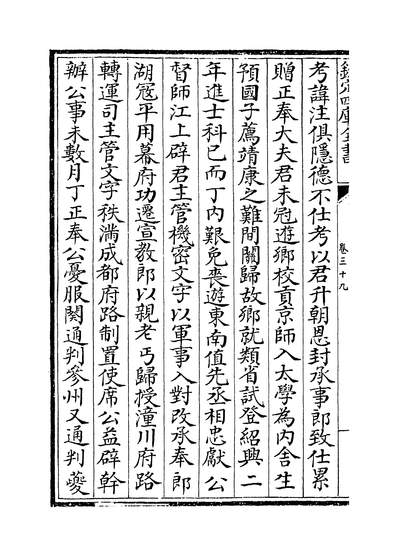 欽定四庫全書
卷三十九
考諱注俱隱德不仕考以君升朝恩封承事郎致仕累
贈正奉大夫君未冠遊鄉校貢京師入太學為內舍生
預國子薦靖康之難間關歸故鄉就類省試登紹興二
年進士科已而丁內艱免喪遊東南值先丞相忠獻公
督師江上辟君主管機密文字以軍事入對改承奉郎
湖冦平用幕府功遷宣教郎以親老丐歸授潼川府路
轉運司主管文字秩滿成都府路制置使席公益辟幹
辦公事未數月丁正奉公憂服闋通判參州又通判夔